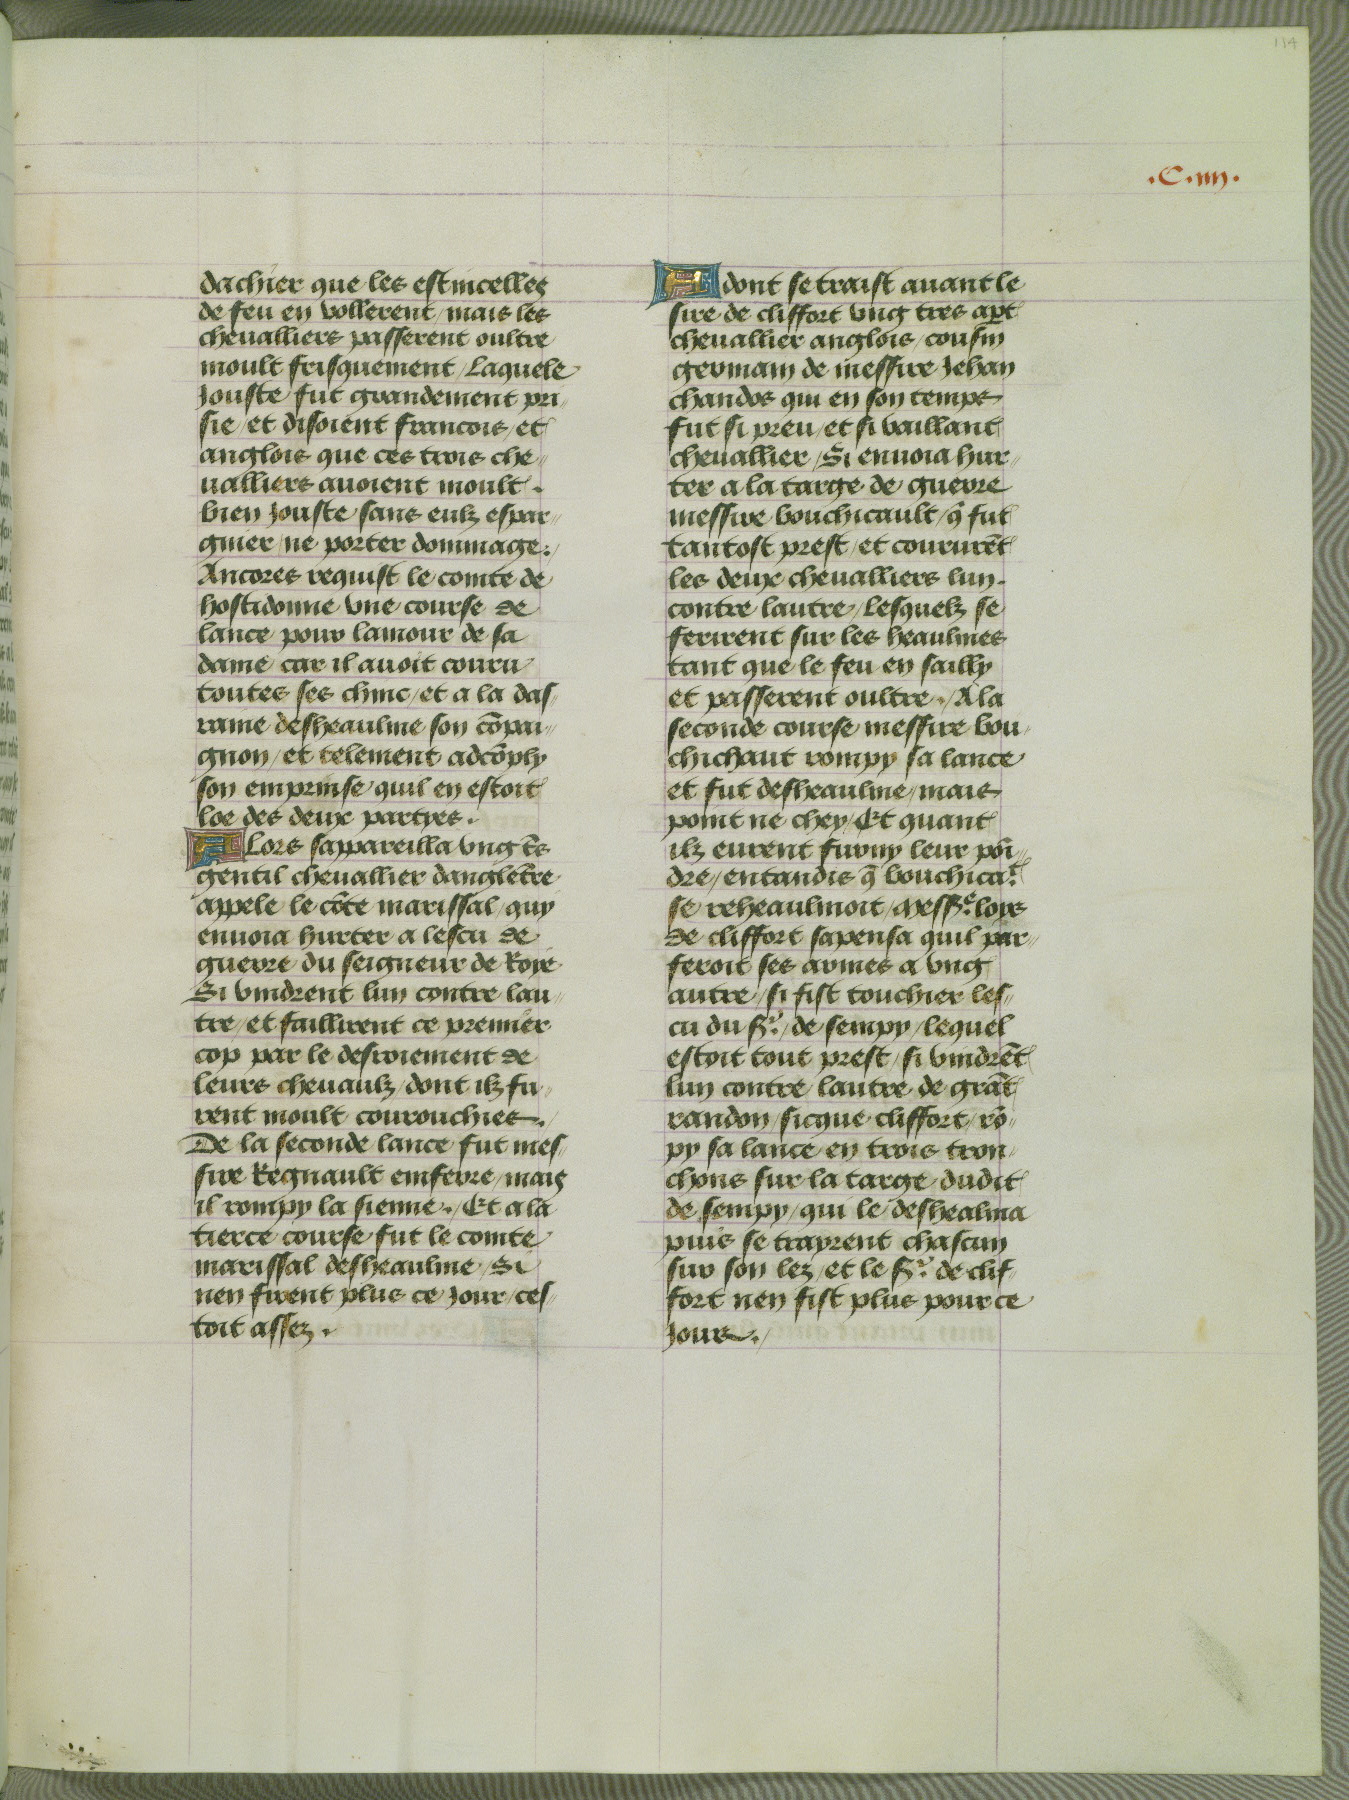 114
.C.iiij.
dachier que les estincelles
de feu en vollerent / mais les
chevalliers passerent oultre
moult frisquement / Laquele
Jouste fut grandement pri-
sie / et disoient francois / et
anglois que ces trois che-
ualliers auoient moult.
bien Jouste sans eulz espar-
gnier / ne porter dommage./
Ancores requist le comte de
hostidonne vne course de
lance pour lamour de sa
dame car il auoit couru
toutes ses chinc / et a la das-
raine desheaulme son cõpai-
gnon / et telement adcõply
son emprinse quil en estoit
loe des deux partyes.
Alors sappareilla vng t̃s
gentil cheuallier dangletr̃e
appele le cõte marissal / quy
enuoia hurter a lescu de
guerre du seigneur de Roye
Si vindrent lun contre lau-
tre / et faillirent ce premier
cop par le desroiement de
leurs cheuaulz / dont ilz fu-
rent moult courouchies./
De la seconde lance fut mes-
sire Regnault emfevre / mais
il rompy la sienne./ Et a la
tierce course fut le comte
marissal desheaulme / Si
nen firent plus ce Jour / ces-
toit assez.
Adont se traist auant le
sire de cliffort vng tres ap̃t
cheuallier anglois / cousin
germain de messire Jehan
chandos qui en son temps
fut si preu / et si vaillant
cheuallier / Si enuoia hur-
ter a la targe de guerre
messire bouchicault / q̃ fut
tantost prest / et coururẽt
les deux cheualliers lun.
contre lautre / Lesquelz se
ferirent sur les heaulmes
tant que le feu en sailly
et passerent oultre./ A la
seconde course messire bou-
chichaut rompy sa lance
et fut desheaulme / mais
point ne chey / Et quant
ilz eurent furny leur
dre / entandis q̃ bouchicat̃
se reheaulmoit / Mess.ᵉ loys
de cliffort sapensa quil par-
feroit ses armes a vng
autre / si fist touchier les-
cu du sr̃. / de sempy / lequel
estoit tout prest / si vindrẽt
lun contre lautre de grãt
randon / sicque cliffort / rõ-
py sa lance en trois tron-
chons sur la targe dudit
de sempy / qui le deshealma
puis se trayrent chascun
sur son lez / et le sr̃. de clif-
fort nen fist plus pour ce
Jour./